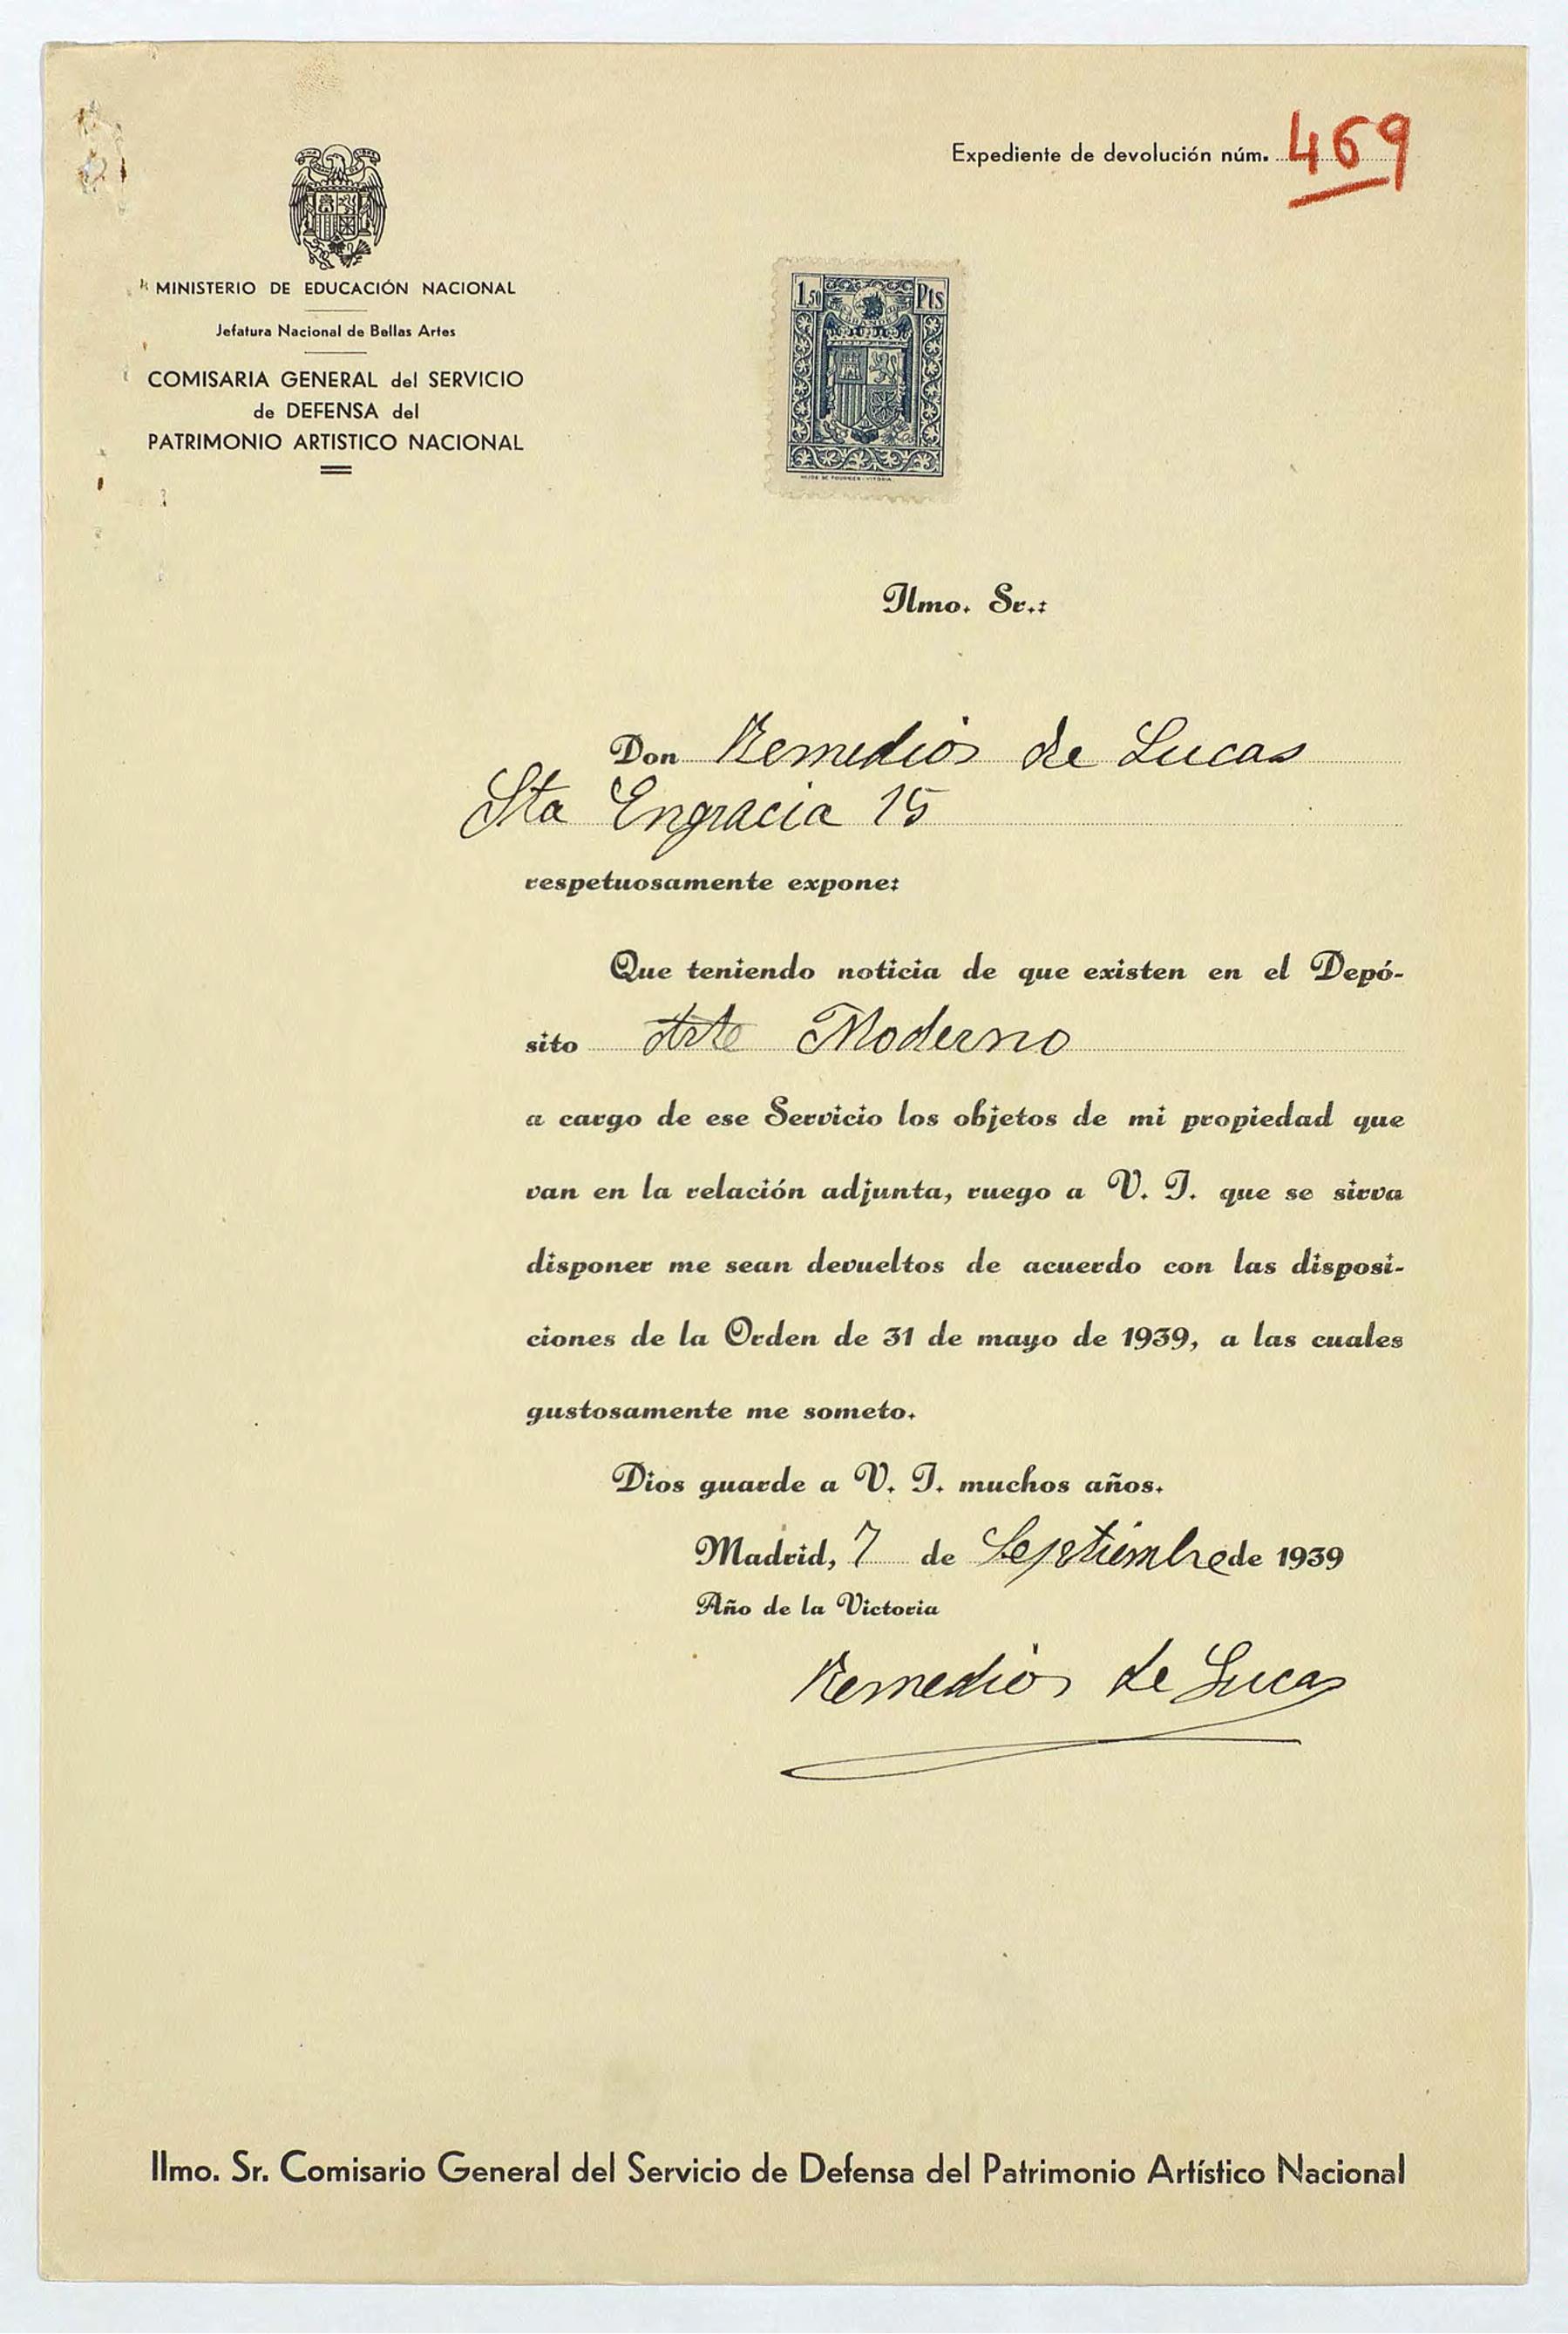 Expediente de devolución núm. 469
MINISTERIO DE EDUCACIÓN NACIONAL
Jefatura Nacional de Bellas Artes
COMISARIA GENERAL del SERVICIO
de DEFENSA del
PATRIMONIO ARTISTICO NACIONAL
1,50 Pts
HIJOS DE FOURNIER - VITORIA
Ilmo. Sr.:
Don Remedios de Lucas
Sta Engracia 15
respetuosamente expone:
Que teniendo noticia de que existen en el Depó-
sito Arte Moderno
a cargo de ese Servicio los objetos de mi propiedad que
van en la relación adjunta, ruego a V. I. que se sirva
disponer me sean devueltos de acuerdo con las disposi-
ciones de la Orden de 31 de mayo de 1939, a las cuales
gustosamente me someto.
Dios guarde a V. I. muchos años.
Madrid, 7 de Septiembre de 1939
Año de la Victoria
Remedios de Lucas
Ilmo. Sr. Comisario General del Servicio de Defensa del Patrimonio Artístico Nacional